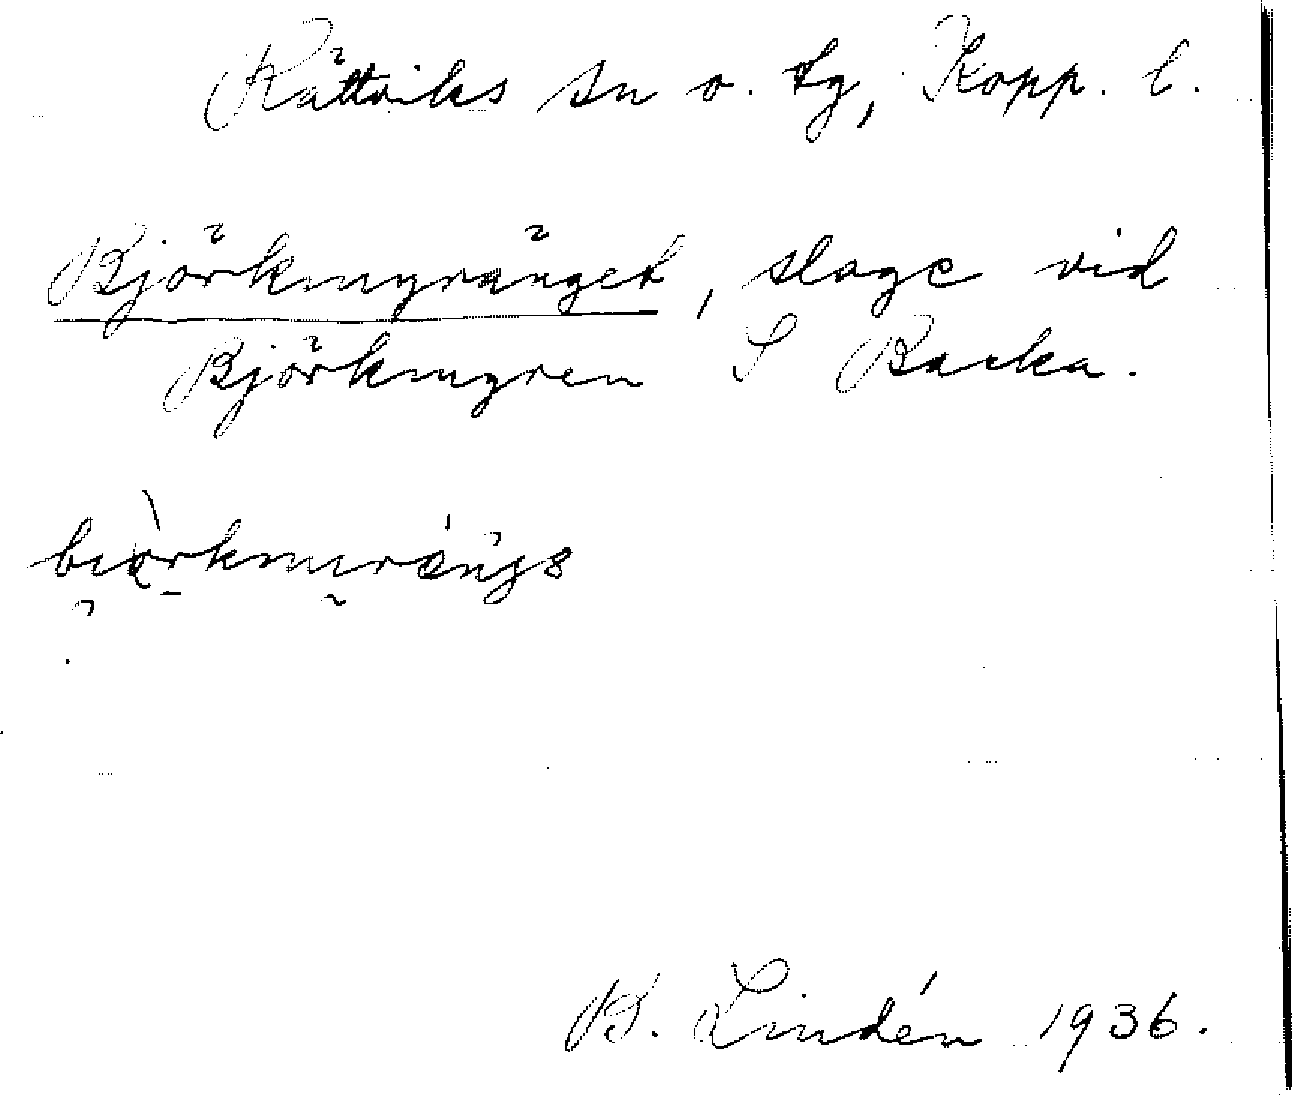 Rättviks sn o. tg, Kopp. l.
Björkmyränget, sloge vid
Björkmyren S Backa.
B. Lindén 1936.